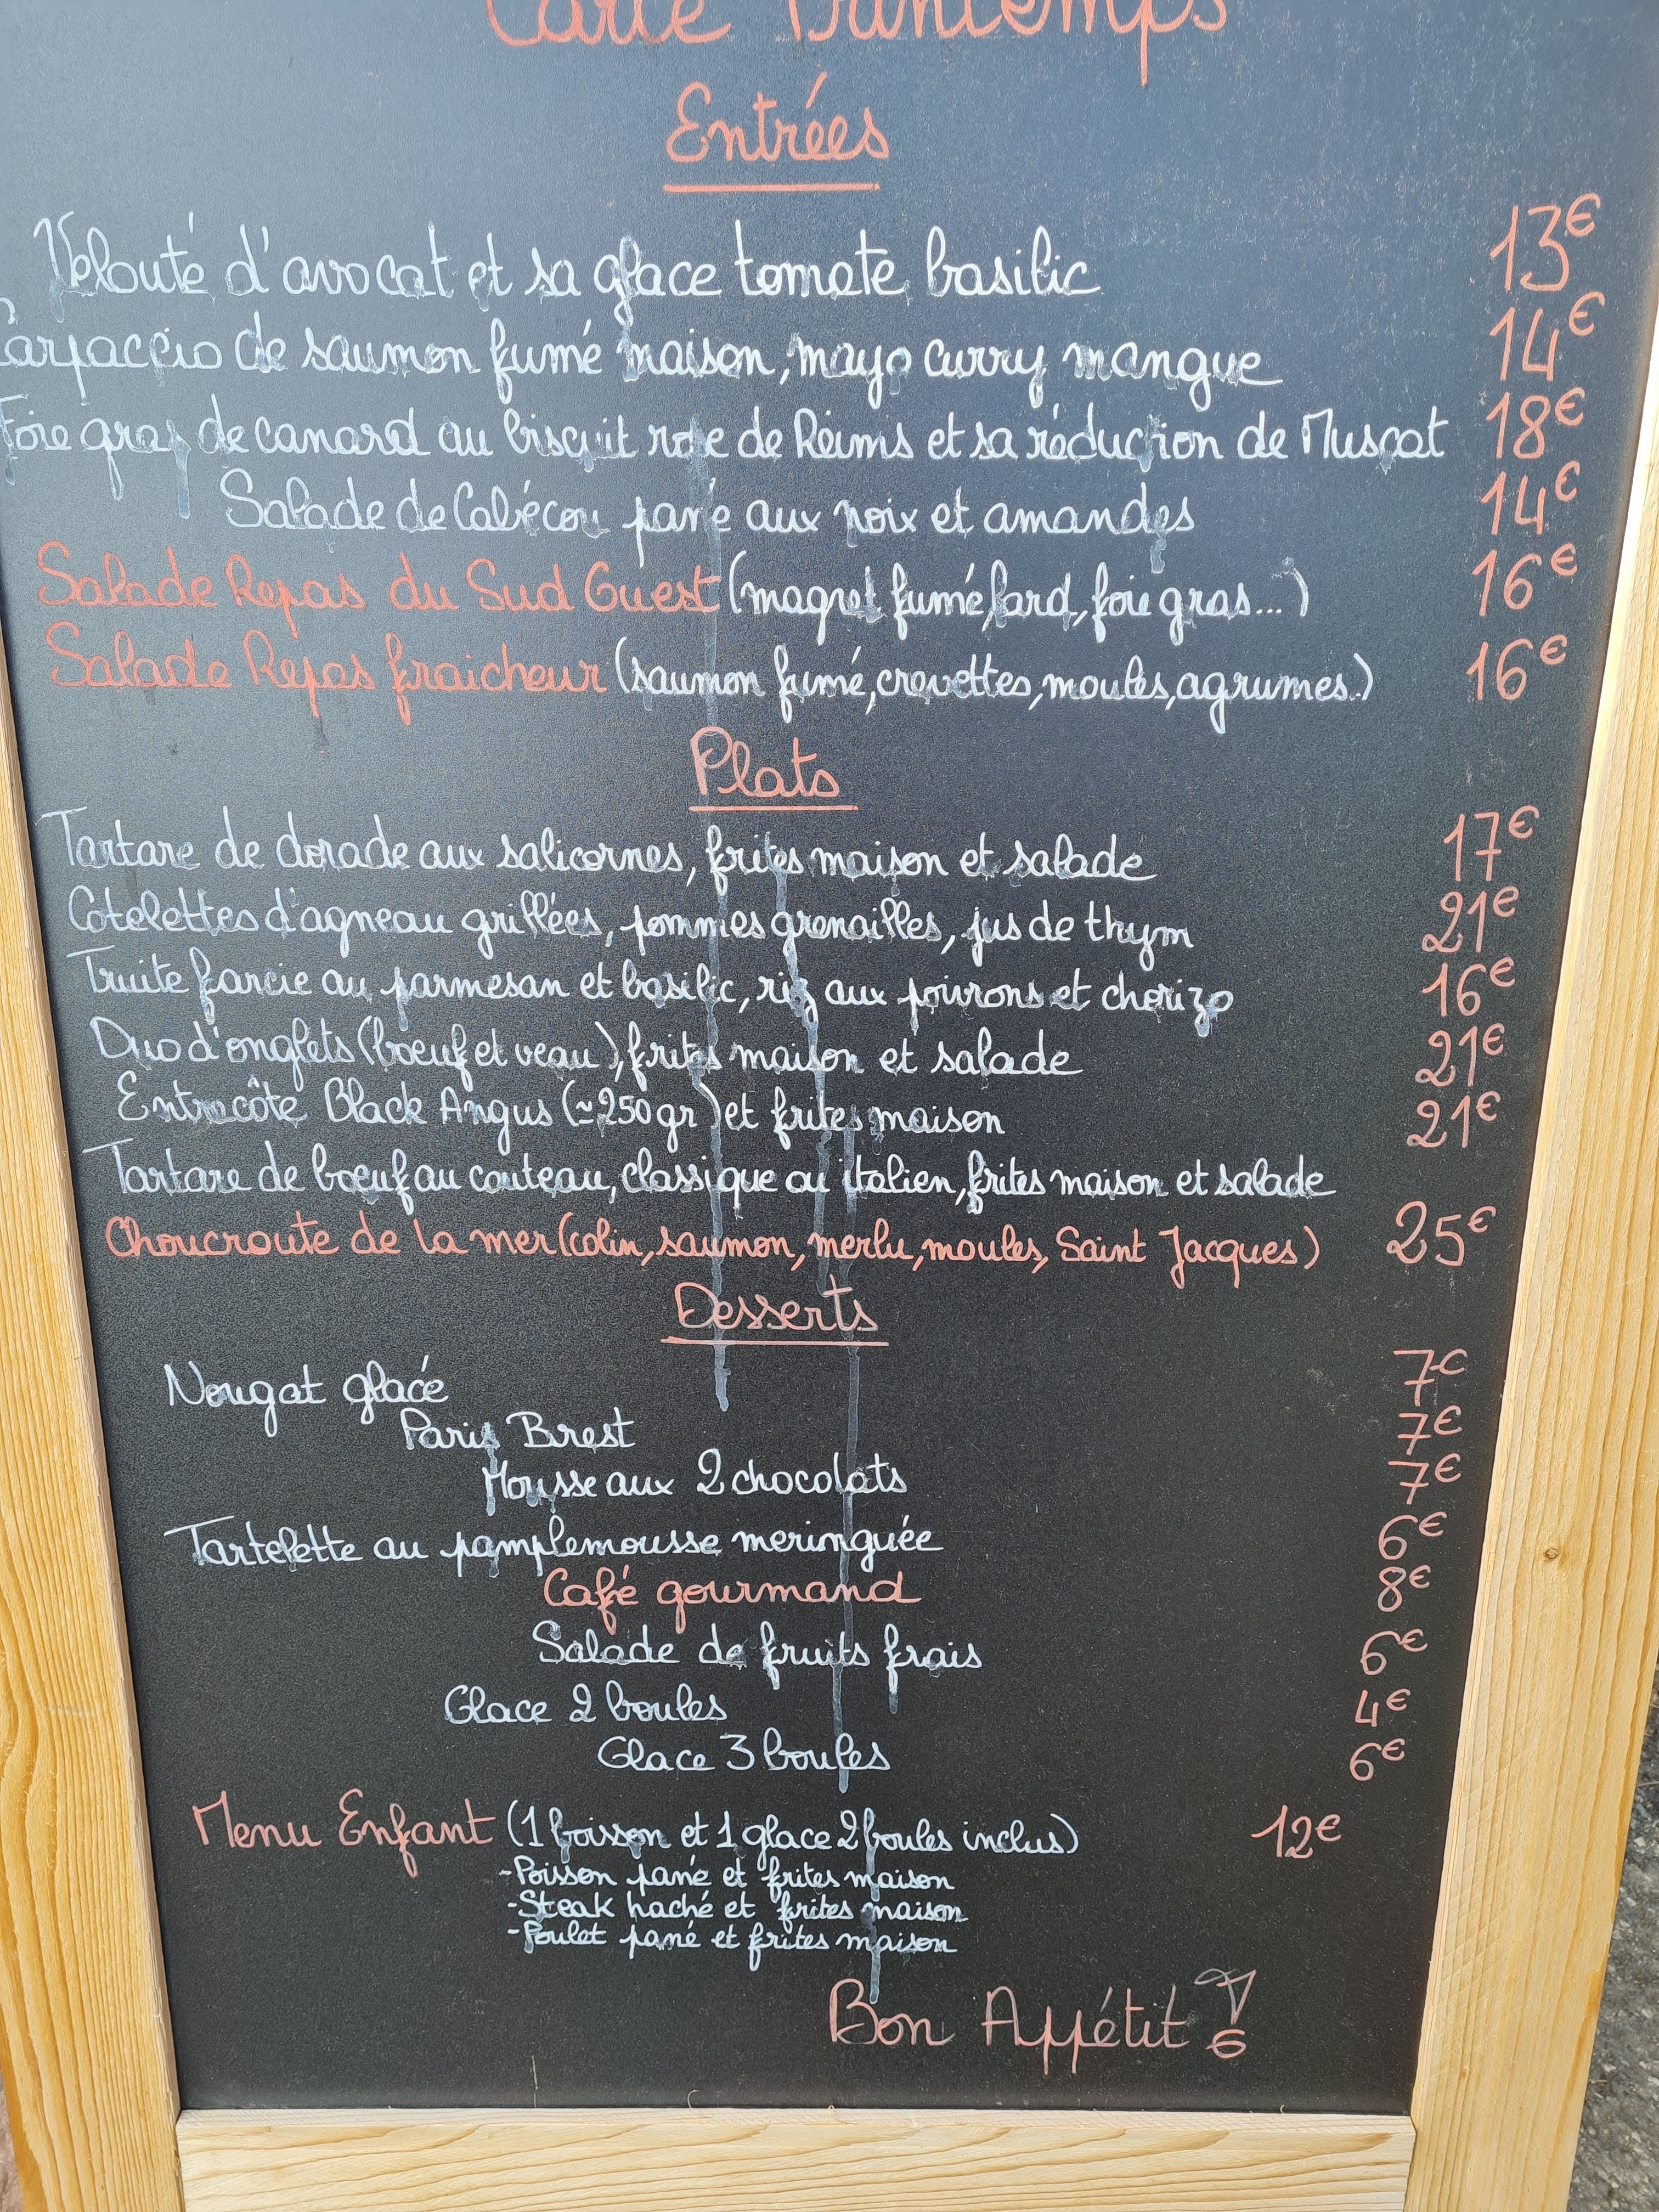 Carte Printemps
Entrées
Velouté d'avocat et sa glace tomate basilic 13€
Carpaccio de saumon fumé maison, mayo curry mangue 14€
Foie gras de canard au biscuit rose de Reims et sa réduction de Muscat 18€
Salade de Cabécou pané aux noix et amandes 14€
Salade Repas du Sud Ouest (magret fumé, lard, foie gras...) 16€
Salade Repas fraicheur (saumon fumé, crevettes, moules, agrumes..) 16€
Plats
Tartare de dorade aux salicornes, frites maison et salade 17€
Cotelettes d'agneau grillées, pommes grenailles, jus de thym 21€
Truite farcie au parmesan et basilic, riz aux poivrons et chorizo 16€
Duo d'onglets (boeuf et veau), frites maison et salade 21€
Entrecôte Black Angus (≃250gr) et frites maison 21€
Tartare de boeuf au couteau, classique ou italien, frites maison et salade
Choucroute de la mer (colin, saumon, merlu, moules, Saint Jacques) 25€
Desserts
Nougat glacé 7€
Paris Brest 7€
Mousse aux 2 chocolats 7€
Tartelette au pamplemousse meringuée 6€
Café gourmand 8€
Salade de fruits frais 6€
Glace 2 boules 4€
Glace 3 boules 6€
Menu Enfant (1 boisson et 1 glace 2 boules inclus) 12€
-Poisson pané et frites maison
-Steak haché et frites maison
-Poulet pané et frites maison
Bon Appétit !